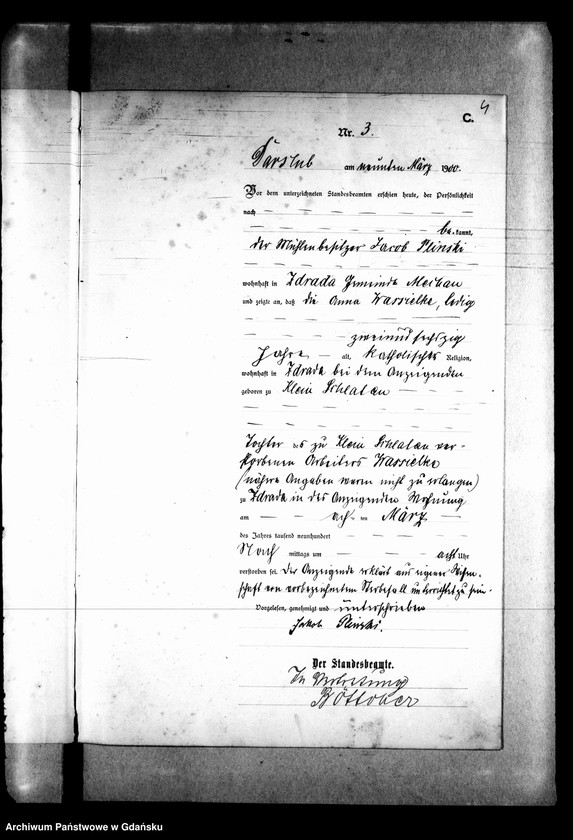 4
C.
Nr. 3.
Darslub am neunten März 1900.
Vor dem unterzeichneten Standesbeamten erschien heute, der Persönlichkeit
nach
be-kannt,
der Mühlenbesitzer Jacob Plinski
wohnhaft in Zdrada Gemeinde Mechau
und zeigte an, daß die Anna Kassielke, ledig
zweiundsechszig
Jahre alt, katholischer Religion,
wohnhaft in Zdrada bei dem Anzeigenden
geboren zu Klein Schlatau
Tochter des zu Klein Schlatau ver-
storbenen Arbeiters Kassielke
(nähere Angaben waren nicht zu erlangen)
zu Zdrada in des Anzeigenden Wohnung
am achten März
des Jahres tausend neunhundert
Nach mittags um acht Uhr
verstorben sei. Der Anzeigende erklärt aus eigener Wissen-
schaft von vorbezeichnetem Sterbefall unterrichtet zu sein.
Vorgelesen, genehmigt und unterschrieben
Jakob Plinski.
Der Standesbeamte.
In Vertretung
Böttcher
Archiwum Państwowe w Gdańsku